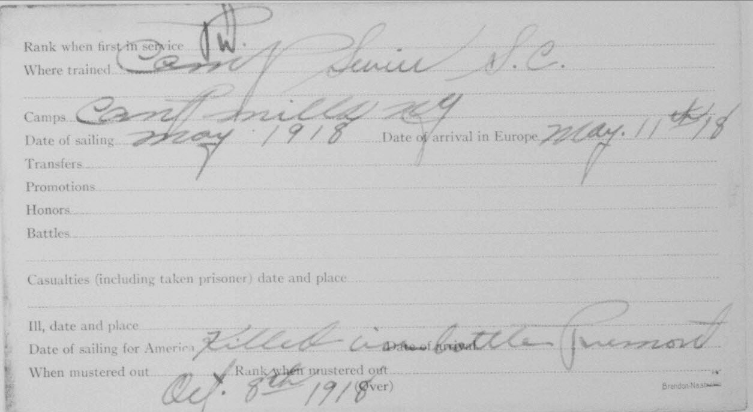 Rank when first in service Pvt.
Where trained Camp Sevier S.C.
Camps Camp Mills NY
Date of sailing May 1918 Date of arrival in Europe May. 11th/18
Transfers
Promotions
Honors
Battles
Casualties (including taken prisoner) date and place
Ill, date and place
Date of sailing for America Killed in battle Premont Date of arrival
When mustered out Oct. 8th 1918 Rank when mustered out
(over)